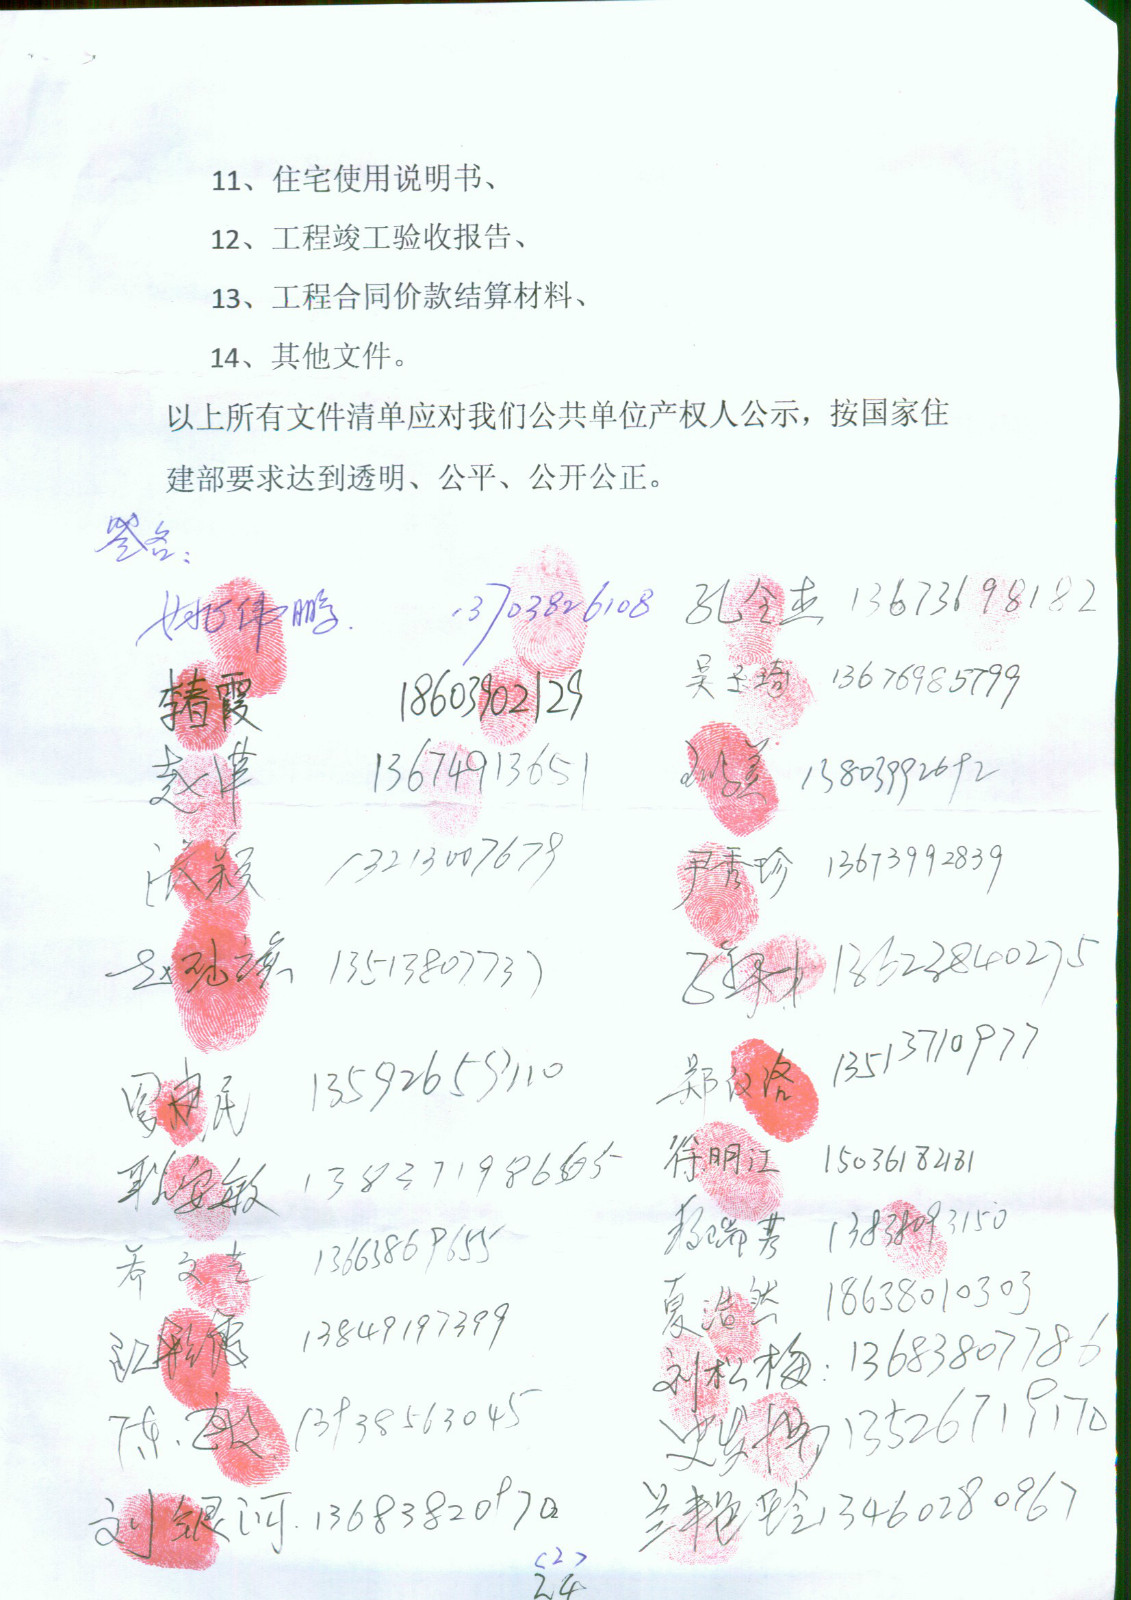 11、住宅使用说明书、
12、工程竣工验收报告、
13、工程合同价款结算材料、
14、其他文件。
以上所有文件清单应对我们公共单位产权人公示，按国家住
建部要求达到透明、公平、公开公正。
签名：
姚伟鹏. 13703826108 孔全杰 13673698182
李春霞 18603902129 吴玉琦 13676985799
赵苹 13674913651 13803992692
张颖 13213007679 尹秀珍 13673992839
13513807737
13592659110 郑汉洛 13513710977
耿安敏 徐明江 15036182181
文 13663869655 杨瑞芳 13838093150
13849197399 夏浩然 18638010303
刘松梅：13683807786
陈 13938563045 13526719170
刘银河. 13460280967
<2>
24